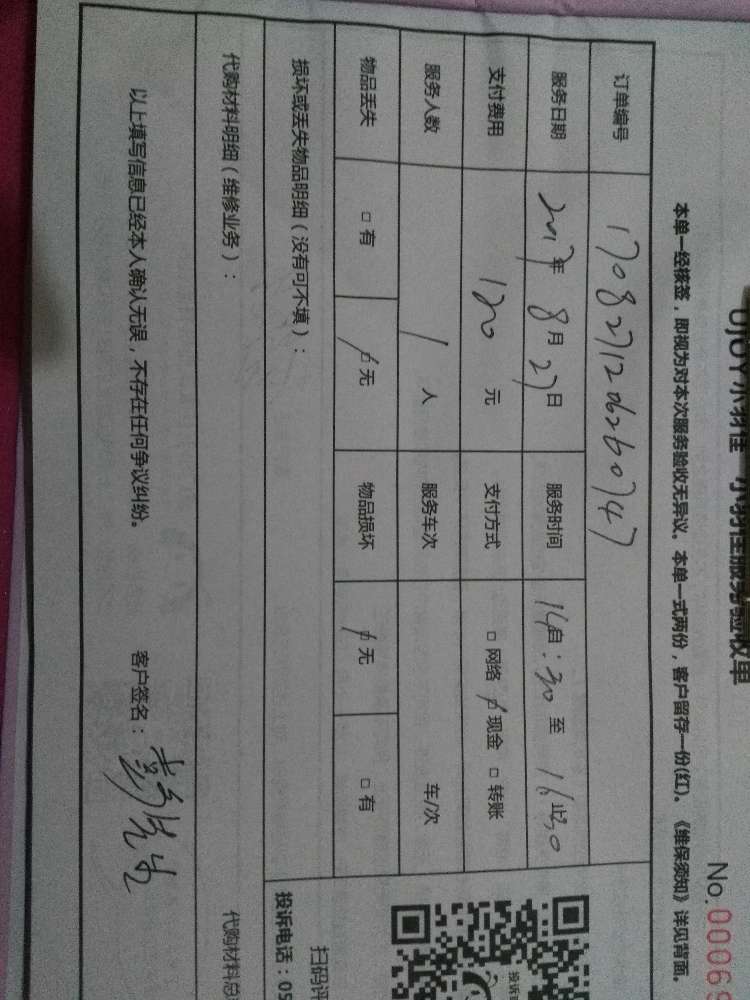 UjoY小羽佳 小羽佳服务验收单
No.00069
本单一经核签，即视为对本次服务验收无异议。本单一式两份，客户留存一份(红)。《维保须知》详见背面。
订单编号 170827126260747
服务日期 2017年8月27日 服务时间 自14:30至16:30止
支付费用 120元 支付方式 □网络 ☑现金 □转账
服务人数 1人 服务车次 车/次
物品丢失 □有 ☑无 物品损坏 ☑无 □有
损坏或丢失物品明细（没有可不填）：
扫码评
投诉电话：05
代购材料明细（维修业务）：
代购材料总
以上填写信息已经本人确认无误，不存在任何争议纠纷。 客户签名：彭先生